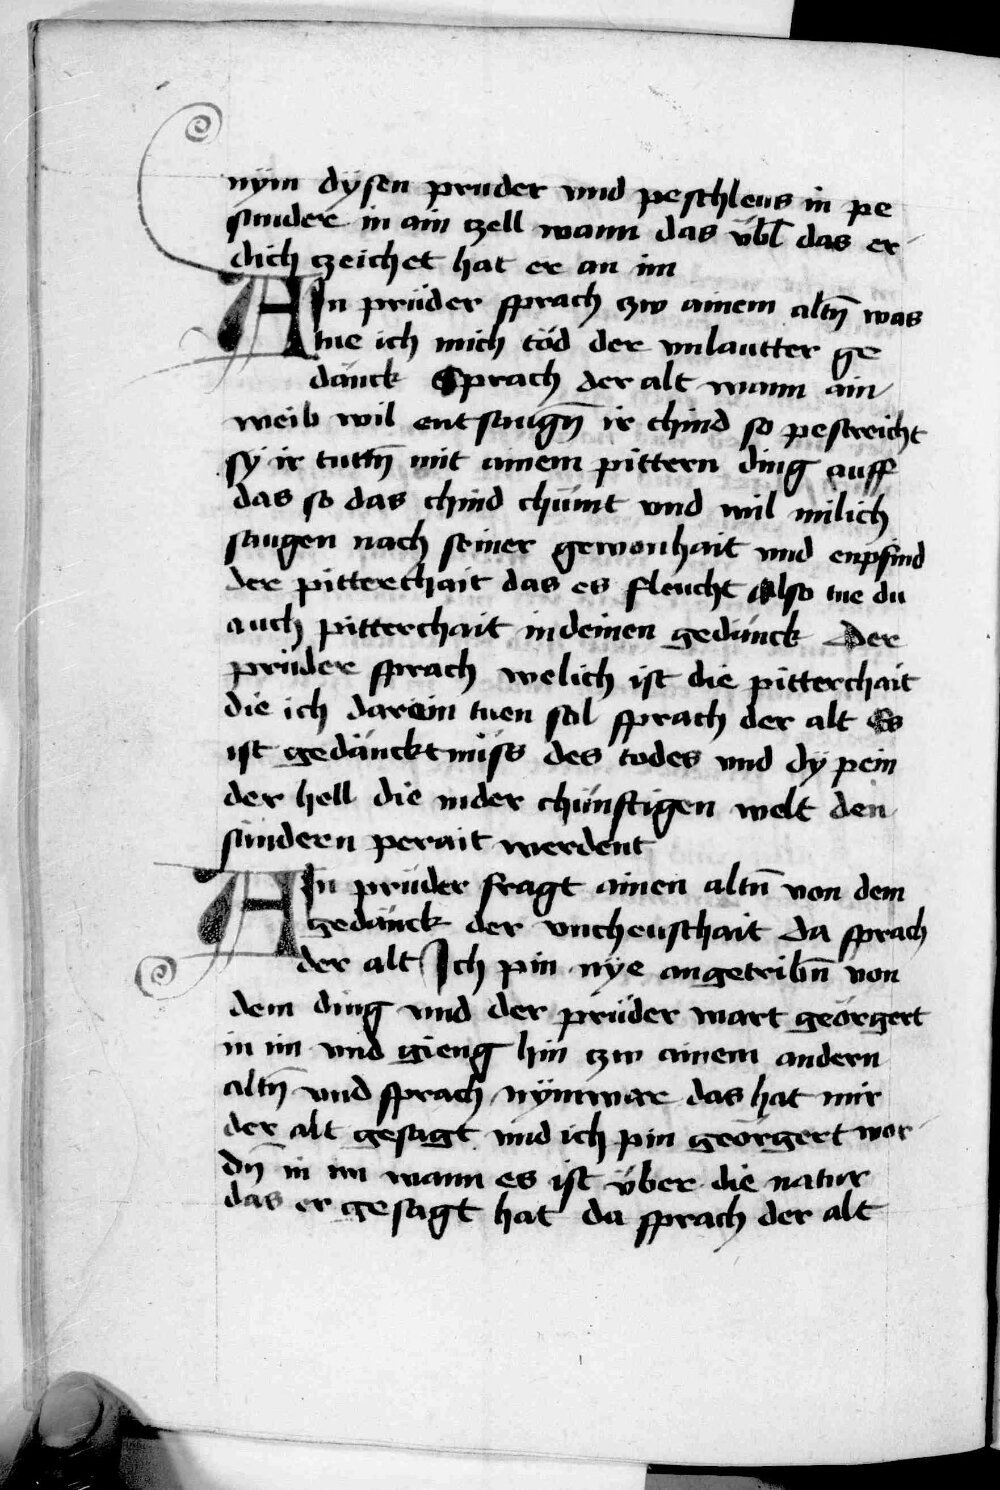 nÿm dÿsen pruder vnd peschleus in pe
sundere in ain tzell wann das v̈bl das er
dich tzeichet hat er an im
AIn prüder sprach tzw ainem altn̄ was
tue ich mich töd der vnlautter ge
dänck Sprach der alt wann ain
weib wil entsaugn̄ ir chind so pestreicht
sÿ ir tuttn̄ mit ainem pittern ding auff
das so das chind chümt vnd wil milich
saugen nach seiner gewonhait vnd enpfind
der pitterchait das es fleucht Also tue du
auch pitterchait in deinen gedänck Der
prüder sprach welich ist die pitterchait
die ich darein tuen sol sprach der alt Es
ist gedäncktnüss des todes vnd dÿ pein
der hell die in der chünftigen welt den
sündern perait werdent
AIn prüder fragt ainen altn̄ von dem
gedänck der vncheuschait Da sprach
der alt Ich pin nÿe angetribn̄ von
dem ding vnd der prüder wart geörgert
in im vnd gieng hin tzw ainem andern
altn̄ vnd sprach nÿmwar das hat mir
der alt gesagt vnd ich pin geörgert wor
dn̄ in im wann es ist v̈ber die natur
das er gesagt hat da sprach der alt